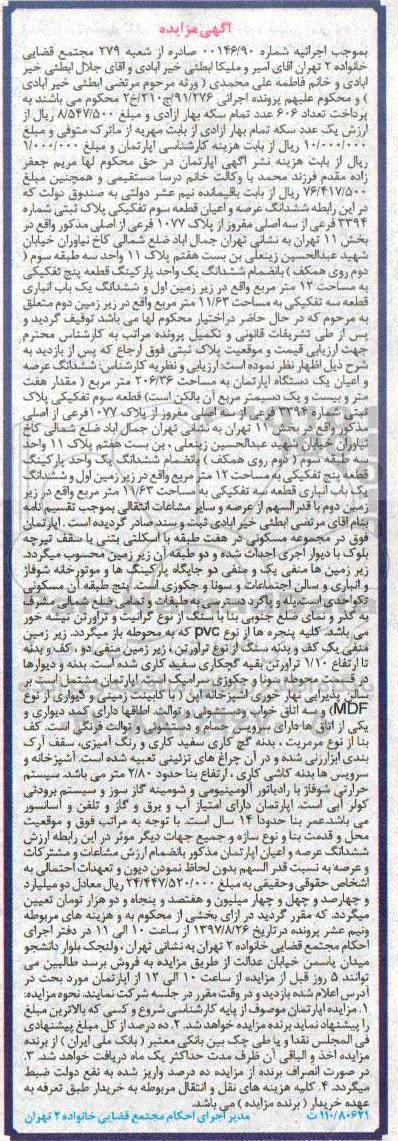 آگهی مزایده
بموجب اجرائیه شماره 00146/90 صادره از شعبه 279 مجتمع قضایی
خانواده 2 تهران آقای امیر و ملیکا ابطئی خیر آبادی و آقای جلال ابطئی خیر
آبادی و خانم فاطمه علی محمدی ( ورثه مرحوم مرتضی ابطئی خیر آبادی
) و محکوم علیهم پرونده اجرائی 91/276/ج210/خ2 محکوم می باشند به
پرداخت تعداد 606 عدد تمام سکه بهار آزادی و مبلغ 8/547/500 ریال از
ارزش یک عدد سکه تمام بهار آزادی از بابت مهریه از ماترک متوفی و مبلغ
10/000/000 ریال از بابت هزینه کارشناسی آپارتمان و مبلغ 1/000/000
ریال از بابت هزینه نشر آگهی آپارتمان در حق محکوم لها مریم جعفر
زاده مقدم فرزند محمد با وکالت خانم درسا مستقیمی و همچنین مبلغ
76/417/500 ریال از بابت باقیمانده نیم عشر دولتی به صندوق دولت که
در این رابطه ششدانگ عرصه و اعیان قطعه سوم تفکیکی پلاک ثبتی شماره
3394 فرعی از سه اصلی مفروز از پلاک 1077 فرعی از اصلی مذکور واقع در
بخش 11 تهران به نشانی تهران جمال آباد ضلع شمالی کاخ نیاوران خیابان
شهید عبدالحسین زینعلی بن بست هفتم پلاک 11 واحد سه طبقه سوم (
دوم روی همکف ) بانضمام ششدانگ یک واحد پارکینگ قطعه پنج تفکیکی
به مساحت 12 متر مربع واقع در زیر زمین اول و ششدانگ یک باب انباری
قطعه سه تفکیکی به مساحت 11/63 متر مربع واقع در زیر زمین دوم متعلق
به مرحوم که در حال حاضر در اختیار محکوم لها می باشد توقیف گردید و
پس از طی تشریفات قانونی و تکمیل پرونده مراتب به کارشناس محترم
جهت ارزیابی قیمت و موقعیت پلاک ثبتی فوق ارجاع که پس از بازدید به
شرح ذیل اظهار نظر نموده است: ارزیابی و نظریه کارشناس: ششدانگ عرصه
و اعیان یک دستگاه آپارتمان به مساحت 206/36 متر مربع ( مقدار هفت
متر و بیست و یک دسیمتر مربع آن بالکن است) قطعه سوم تفکیکی پلاک
ثبتی شماره 3394 فرعی از سه اصلی مفروز از پلاک 1077 فرعی از اصلی
مذکور واقع در بخش 11 تهران به نشانی تهران جمال آباد ضلع شمالی کاخ
نیاوران خیابان شهید عبدالحسین زینعلی ، بن بست هفتم پلاک 11 واحد
سه طبقه سوم ( دوم روی همکف ) بانضمام ششدانگ یک واحد پارکینگ
قطعه پنج تفکیکی به مساحت 12 متر مربع واقع در زیر زمین اول و ششدانگ
یک باب انباری قطعه سه تفکیکی به مساحت 11/63 متر مربع واقع در زیر
زمین دوم با قدرالسهم از عرصه و سایر مشاعات انتقالی بموجب تقسیم نامه
بنام آقای مرتضی ابطئی خیر آبادی ثبت و سند صادر گردیده است . آپارتمان
فوق در مجموعه مسکونی در هفت طبقه با اسکلتی بتنی با سقف تیرچه
بلوک با دیوار آجری احداث شده و دو طبقه آن زیر زمین محسوب میگردد.
زیر زمین ها منفی یک و منفی دو جایگاه پارکینگ ها و موتورخانه شوفاژ
و انباری و سالن اجتماعات و سونا و جکوزی است. پنج طبقه آن مسکونی
تکواحدی است. پله و پاگرد دسترسی به طبقات و تمامی ضلع شمالی مشرف
به گذر و نمای ضلع جنوبی بنا با سنگ از نوع گرانیت و تراورتن تیشه خور
می باشد. کلیه پنجره ها از نوع pvc که به محوطه باز میگردد. زیر زمین
منفی یک کف و بدنه سنگ از نوع تراورتن ، زیر زمین منفی دو ، کف و بدنه
تا ارتفاع 1/10 تراورتن بقیه گچکاری سفید کاری شده است. بدنه و دیوارها
در قسمت محوطه سونا و جکوزی سرامیک است. آپارتمان مشتمل است بر
سالن پذیرایی نهار خوری آشپزخانه اپن ( با کابینت زمینی و دیواری از نوع
MDF) و سه اتاق خواب و دستشویی و توالت. اطاقها دارای کمد دیواری و
یکی از اتاق ها دارای سرویس حمام و دستشویی و توالت فرنگی است. کف
بنا از نوع مرمریت ، بدنه گچ کاری سفید کاری و رنگ آمیزی، سقف آرک
بندی ابزارزنی شده و در آن چراغ های تزئینی تعبیه شده است. آشپزخانه و
سرویس ها بدنه کاشی کاری ، ارتفاع بنا حدود 2/80 متر می باشد. سیستم
حرارتی شوفاژ با رادیاتور آلومینیومی و شومینه گاز سوز و سیستم برودتی
کولر آبی است. آپارتمان دارای امتیاز آب و برق و گاز و تلفن و آسانسور
می باشد. عمر بنا حدودا 14 سال است. با توجه به مراتب فوق و موقعیت
محل و قدمت بنا و نوع سازه و جمیع جهات دیگر موثر در این رابطه ارزش
ششدانگ عرصه و اعیان آپارتمان مذکور بانضمام ارزش مشاعات و مشترکات
و عرصه به نسبت قدر السهم بدون لحاظ نمودن دیون و تعهدات احتمالی به
اشخاص حقوقی و حقیقی به مبلغ 24/447/520/000 ریال معادل دو میلیارد
و چهارصد و چهل و چهار میلیون و هفتصد و پنجاه و دو هزار تومان تعیین
میگردد. که مقرر گردید در ازای بخشی از محکوم به و هزینه های مربوطه
ونیم عشر پرونده در تاریخ 1397/8/26 از ساعت 10 الی 11 در دفتر اجرای
احکام مجتمع قضایی خانواده 2 تهران به نشانی تهران ، ولنجک بلوار دانشجو
میدان یاسمن خیابان عدالت از طریق مزایده به فروش برسد طالبین می
توانند 5 روز قبل از مزایده از ساعت 10 الی 12 از آپارتمان مورد بحث در
آدرس اعلام شده بازدید و در وقت مقرر در جلسه شرکت نمایند. نحوه مزایده:
1. مزایده آپارتمان موصوف از پایه کارشناسی شروع و کسی که بالاترین مبلغ
را پیشنهاد نماید برنده مزایده خواهد شد. 2. ده درصد از کل مبلغ پیشنهادی
فی المجلس نقدا و یا طی چک بین بانکی معتبر ( بانک ملی ایران ) از برنده
مزایده اخذ و الباقی آن ظرف مدت حداکثر یک ماه دریافت خواهد شد. 3.
در صورت انصراف برنده از مزایده ده درصد واریز شده به نفع دولت ضبط
میگردد. 4. کلیه هزینه های نقل و انتقال مربوطه به خریدار طبق تعرفه به
عهده خریدار ( برنده مزایده ) می باشد.
110/80631 ت مدیر اجرای احکام مجتمع قضایی خانواده 2 تهران